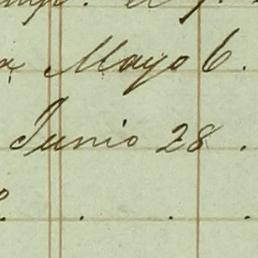 Mayo 6.
Junio 28.